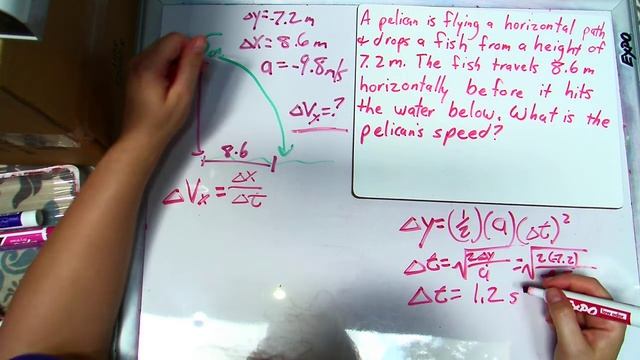 Δy=-7.2 m
Δx=8.6m
a=-9.8m/s
ΔVx=?
8.6
ΔVx=Δx/Δt
A pelican is flying a horizontal path
& drops a fish from a height of
7.2m. The fish travels 8.6m
horizontally before it hits
the water below. What is the
pelican's speed?
Δy=(1/2)(a)(Δt)²
Δt=√(2Δy/a)=√(2(-7.2)
Δt=1.2s
EXPO
EXPO